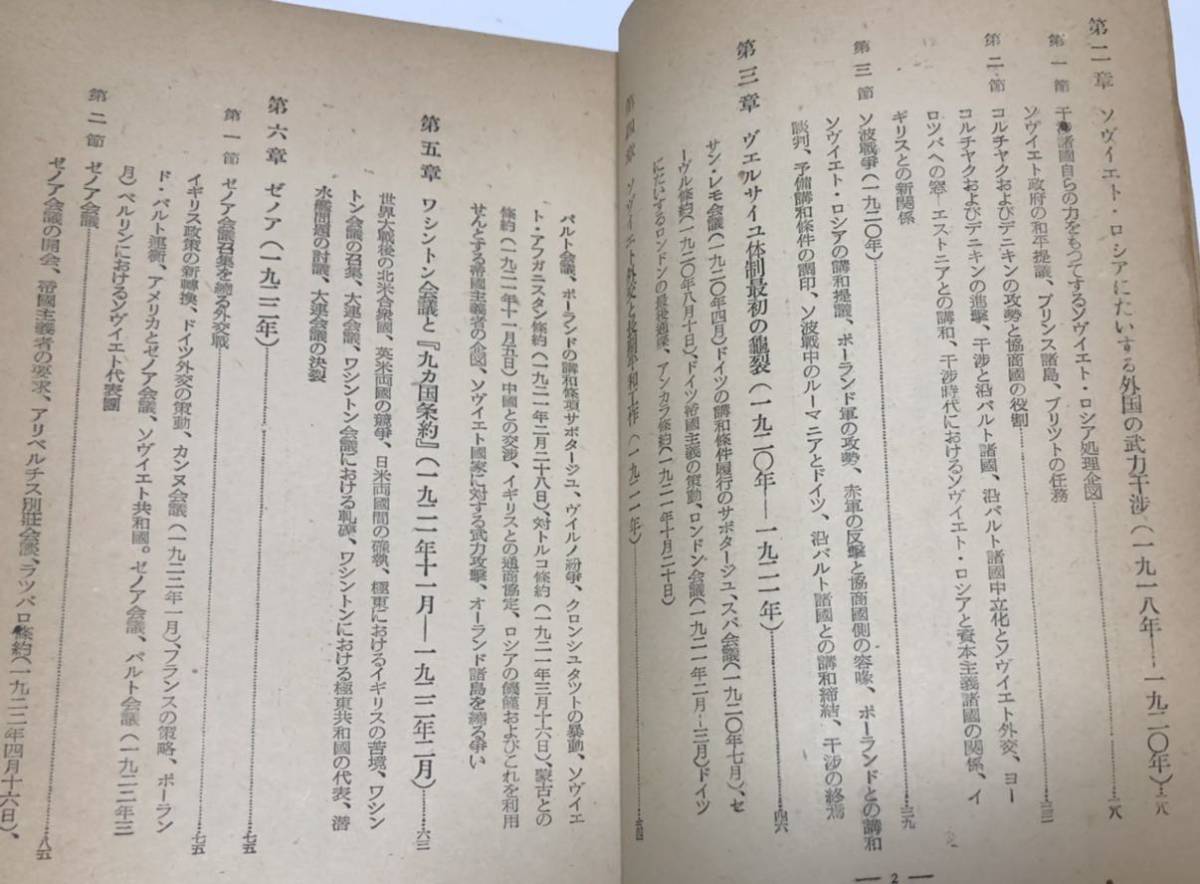 第二章 ソヴイエト・ロシアにたいする外国の武力干渉(一九一八年―一九二〇年)…一八
第一節 干渉諸國自らの力をもつてするソヴイエト・ロシア処理企図……一八
ソヴイエト政府の和平提議、プリンス諸島、ブリツトの任務
第二節 コルチヤクおよびデニキンの攻勢と協商國の役割……三二
コルチヤクおよびデニキンの進擊、干渉と沿バルト諸國、沿バルト諸國中立化とソヴイエト外交、ヨー
ロツパへの窓―エストニアとの講和、干渉時代におけるソヴイエト・ロシアと資本主義諸國の関係、イ
ギリスとの新関係
第三節 ソ波戦爭(一九二〇年)……三九
ソヴイエト・ロシアの講和提議、ポーランド軍の攻勢、赤軍の反擊と協商國側の容喙、ポーランドとの講和
談判、予備講和條件の調印、ソ波戦中のルーマニアとドイツ、沿バルト諸國との講和締結、干渉の終焉
第三章 ヴエルサイユ体制最初の龜裂(一九二〇年―一九二一年)……四六
サン・レモ会議(一九二〇年四月)ドイツの講和條件履行のサボタージユ、スパ会議(一九二〇年七月)、セ
ーヴル條約(一九二〇年八月十日)、ドイツ帝國主義の策動、ロンドン会議(一九二一年二月―三月)ドイツ
にたいするロンドンの最後通牒、アンカラ條約(一九二一年十月二十日)
第四章 ソヴイエト外交と長期平和工作(一九二一年)……五四
― 2 ―
バルト会議、ポーランドの講和條項サボタージユ、ヴイルノ紛爭、クロンシユタツトの暴動、ソヴイエ
ト・アフガニスタン條約(一九二一年二月二八日)、対トルコ條約(一九二一年三月十六日)、蒙古との
條約(一九二一年十一月五日)中國との交渉、イギリスとの通商協定、ロシアの饑饉およびこれを利用
せんとする帝國主義者の企図、ソヴイエト國家に対する武力攻擊、オーランド諸島を繞る爭い
第五章 ワシントン会議と『九カ国条約』(一九二一年十一月―一九二二年二月)…六三
世界大戦後の北米合衆國、英米両國の競爭、日米両國間の確執、極東におけるイギリスの苦境、ワシン
トン会議の召集、大連会議、ワシントン会議における軋轢、ワシントンにおける極東共和國の代表、潜
水艦問題の討議、大連会議の決裂
第六章 ゼノア(一九二二年)……七五
第一節 ゼノア会議召集を繞る外交戦……七五
イギリス政策の新轉換、ドイツ外交の策動、カンヌ会議(一九二二年一月)、フランスの策略、ポーラン
ド・バルト連衡、アメリカとゼノア会議、ソヴイエト共和國。ゼノア会議、バルト会議(一九二二年三
月)ベルリンにおけるソヴイエト代表團
第二節 ゼノア会議……八五
ゼノア会議の開会、帝國主義者の要求、アリベルチス別莊会談、ラツパロ條約(一九二二年四月十六日)、